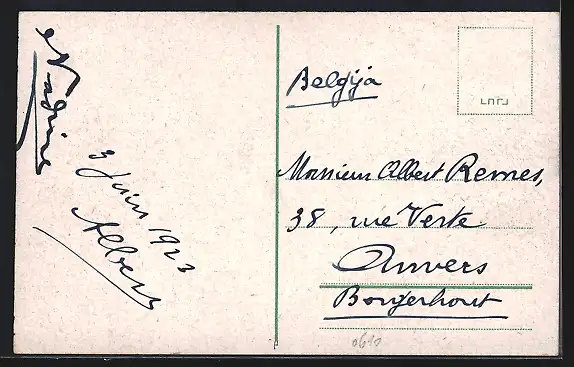 Nadine
3 Juin 1923
Albert
Belgija
Monsieur Albert Remes,
38, rue Verte
Anvers
Borgerhout
0610